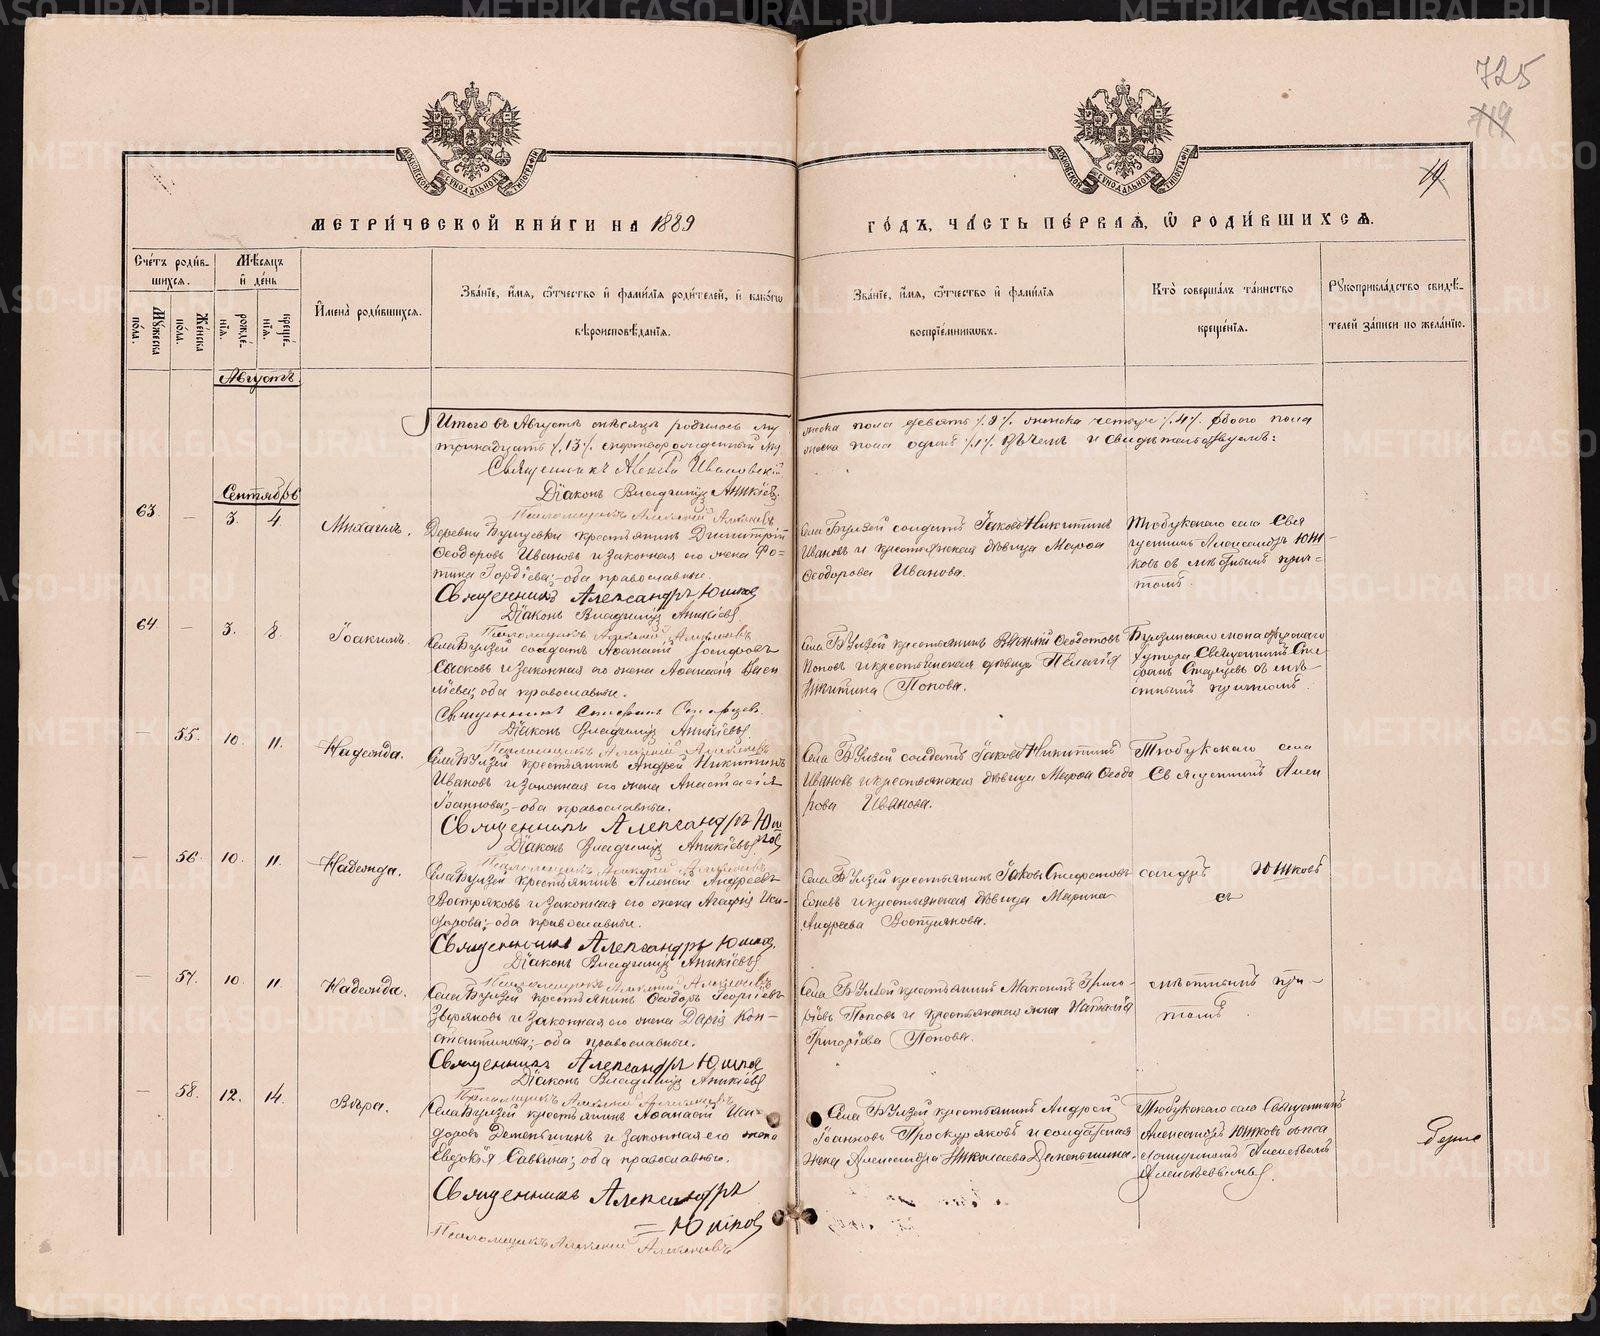 725
719
19
МОСКОВСКОЙ СУНОДАЛЬНОЙ ТИПОГРАФІИ
МОСКОВСКОЙ СУНОДАЛЬНОЙ ТИПОГРАФІИ
МЕТРИ́ЧЕСКОЙ КНИ́ГИ НА 1889
ГО́ДЪ, ЧА́СТЬ ПЕ́РВАѦ, Ѡ РОДИ́ВШИХСѦ.
Сче́тъ роди́в-
шихсѧ.
Мꙋ́жеска по́ла.
Же́нска по́ла.
Мѣ́сѧцъ
и҆ де́нь
рожде́-нїѧ.
креще́-нїѧ.
И҆мена̀ роди́вшихсѧ.
Зва́нїе, и҆́мѧ, ѻ҆́тчество и҆ фами́лїѧ роди́телей, и҆ како́гѡ
вѣроисповѣ́данїѧ.
Зва́нїе, и҆́мѧ, ѻ҆́тчество и҆ фами́лїѧ
воспрїе́мникѡвъ.
Кто̀ соверша́лъ та́инство
креще́нїѧ.
Рꙋкоприкла́дство свидѣ́-
телей за́писи по жела́нїю.
Августъ.
Итого въ Августѣ мѣсяцѣ родилось му
жеска пола девять /.9/. женска четыре /.4/. обоего пола
тринадцать /.13/. мертворожденный му
жеска пола одинъ /.1/.
и свидѣтельствуемъ:
Священникъ Алексѣй Ивановскій
Діаконъ Владиміръ Аникіевъ
Псаломщикъ Алексѣй
Сентябрь
63. — 3. 4. Михаилъ.
крестьянинъ Димитрій
Ѳеодоровъ Ивановъ и законная его жена Фо-
тина Гордіева; оба православные.
Священникъ Александръ Юшковъ
Діаконъ Владиміръ Аникіевъ
Псаломщикъ Алексѣй
Села Булзей солдатъ Іаковъ Никитинъ
Ивановъ и крестьянская дѣвица Марѳа
Ѳеодорова Иванова.
Тюбукскаго села Свя
щенникъ Александръ Юш-
ковъ съ мѣстнымъ прич-
томъ.
64. — 3. 8. Іоакимъ.
Села Булзей солдатъ Аѳанасій
и законная его жена Аѳанасія Васи
льева; оба православные.
Священникъ Стефанъ
Діаконъ Владиміръ Аникіевъ
Псаломщикъ Алексѣй
Села Булзей крестьянинъ Ѳеодотовъ
Поповъ и крестьянская дѣвица Пелагія
Никитина Попова.
хутора Священникъ Сте-
фанъ съ мѣ-
стнымъ причтомъ.
— 55. 10. 11. Надежда.
Села Булзей крестьянинъ Андрей Никитинъ
Ивановъ и законная его жена Анастасія
Іоаннова; оба православные.
Священникъ Александръ Юш
ковъ
Діаконъ Владиміръ Аникіевъ
Псаломщикъ Алексѣй
Села Булзей солдатъ Іаковъ Никитинъ
Ивановъ и крестьянская дѣвица Марѳа Ѳеодо
рова Иванова.
Тюбукскаго села
Священникъ Алек
— 56. 10. 11. Надежда.
Села Булзей крестьянинъ Алексѣй Андреевъ
Востряковъ и законная его жена Агафія Иси-
дорова; оба православные.
Священникъ Александръ Юшковъ
Діаконъ Владиміръ Аникіевъ
Псаломщикъ Алексѣй
Села Булзей крестьянинъ Іаковъ Стефановъ
и крестьянская дѣвица Марина
Андреева Вострякова.
сандръ Юшковъ
съ
— 57. 10. 11. Надежда.
Села Булзей крестьянинъ Ѳеодоръ Георгіевъ
Звѣряковъ и законная его жена Дарія Кон-
стантинова; оба православные.
Священникъ Александръ Юшковъ
Діаконъ Владиміръ Аникіевъ
Псаломщикъ Алексѣй
Села Булзей крестьянинъ Максимъ Григо-
рьевъ Поповъ и крестьянская жена Наталія
Григорьева Попова.
мѣстнымъ при-
чтомъ.
— 58. 12. 14. Вѣра.
Села Булзей крестьянинъ Аѳанасій Иси-
доровъ Деменьшинъ и законная его жена
Саввина; оба православные.
Священникъ Александръ
Юшковъ
Псаломщикъ Алексѣй
Села Булзей крестьянинъ Андрей
Іоанновъ Проскуряковъ и солдатская
жена Александра Николаева Деменьшина.
Тюбукскаго села Священникъ
Александръ Юшковъ съ пса
ломщикомъ Алексѣемъ
METRIKI.GASO-URAL.RU